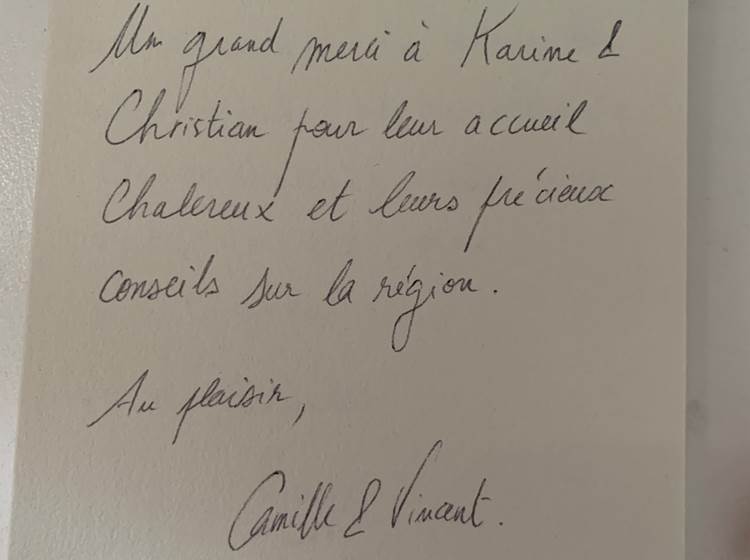 Un grand merci à Karine &
Christian pour leur accueil
Chalereux et leurs précieux
conseils sur la région.
Au plaisir,
Camille & Vincent.